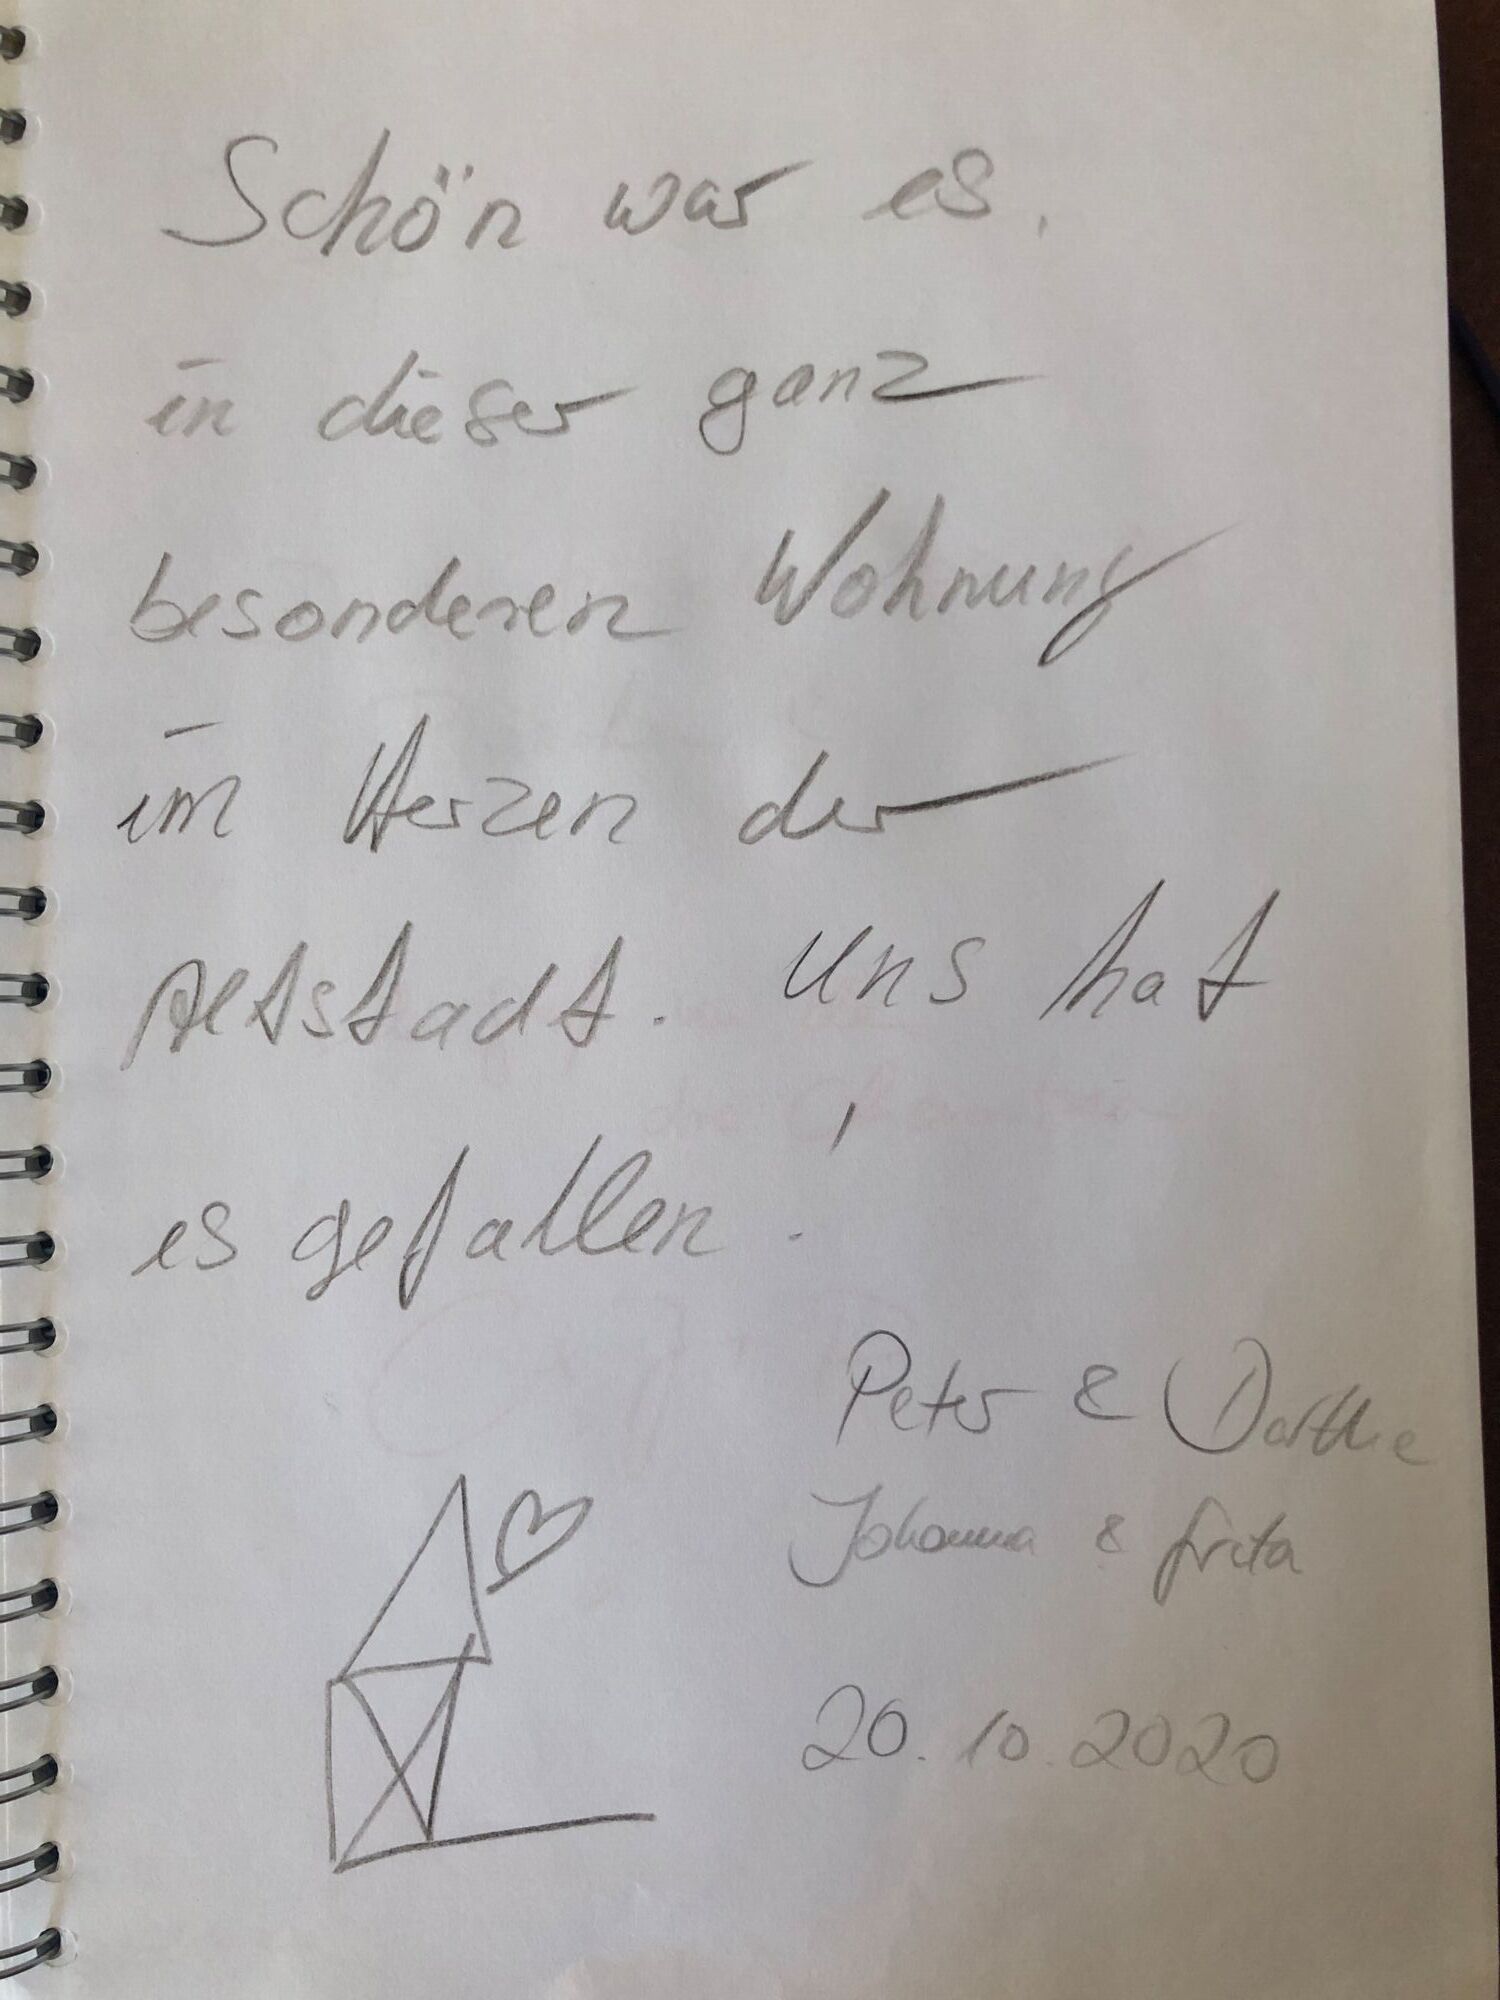 Schön war es,
in dieser ganz
besonderen Wohnung
im Herzen der
Altstadt. Uns hat
es gefallen!
Peter & Dorthe
Johanna & Greta
20.10.2020